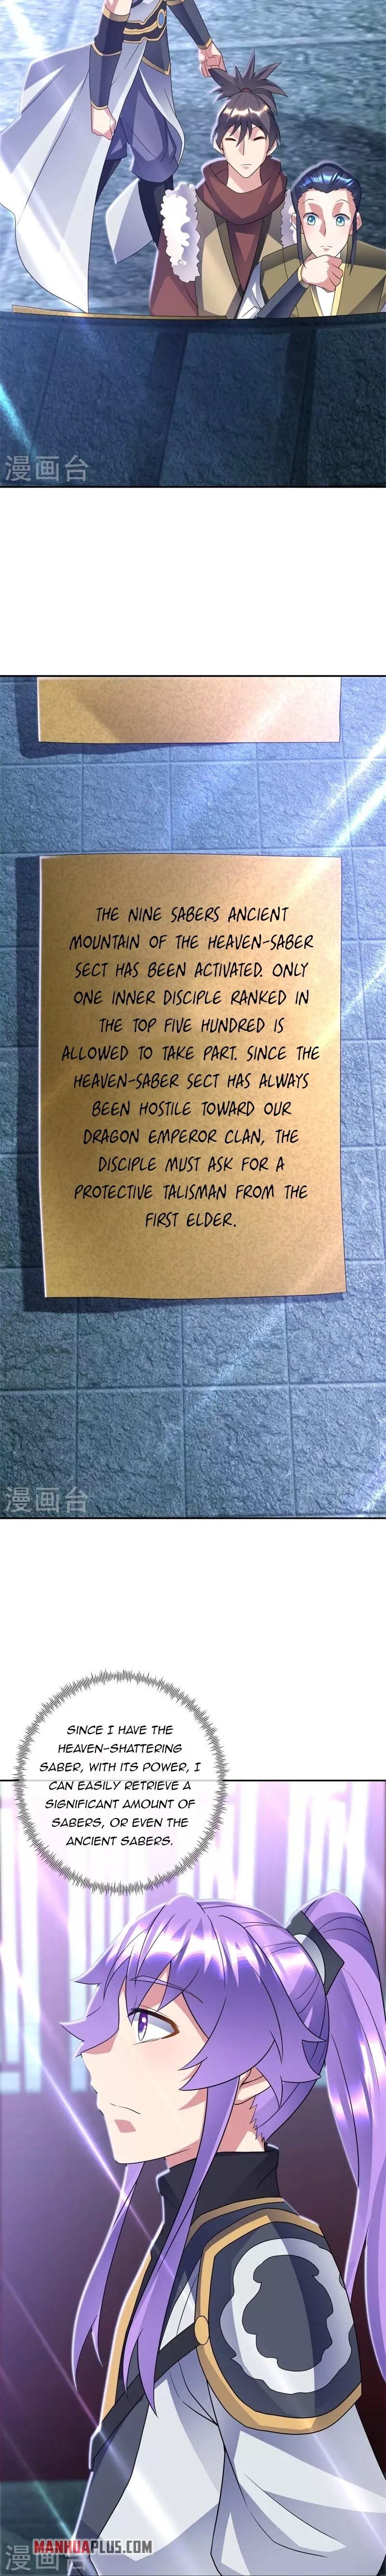 漫画台
THE NINE SABERS ANCIENT
MOUNTAIN OF THE HEAVEN-SABER
SECT HAS BEEN ACTIVATED. ONLY
ONE INNER DISCIPLE RANKED IN
THE TOP FIVE HUNDRED IS
ALLOWED TO TAKE PART. SINCE THE
HEAVEN-SABER SECT HAS ALWAYS
BEEN HOSTILE TOWARD OUR
DRAGON EMPEROR CLAN, THE
DISCIPLE MUST ASK FOR A
PROTECTIVE TALISMAN FROM THE
FIRST ELDER.
漫画台
SINCE I HAVE THE
HEAVEN-SHATTERING
SABER, WITH ITS POWER, I
CAN EASILY RETRIEVE A
SIGNIFICANT AMOUNT OF
SABERS, OR EVEN THE
ANCIENT SABERS.
漫画台
MANHUAPLUS.COM